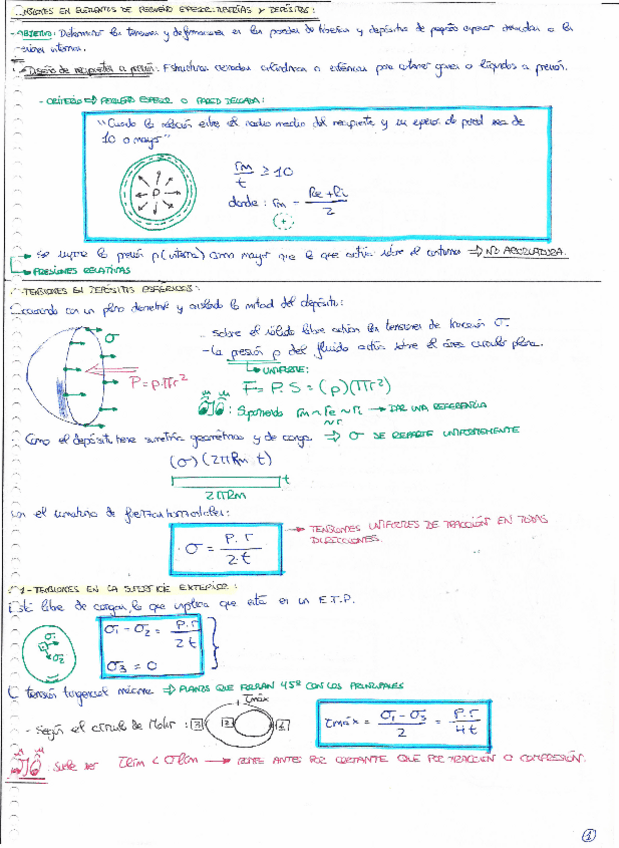 TENSIONES EN ELEMENTOS DE PEQUEÑO ESPESOR: TUBERÍAS Y DEPÓSITOS:
- OBJETIVO: Determinar las tensiones y deformaciones en las paredes de tuberías y depósitos de pequeño espesor a la
interna.
Diseño de recipientes a presión: Estructuras cerradas cilíndricas o esféricas para contener gases o líquidos a presión.
- CRITERIO ⇒ PEQUEÑO ESPESOR O PARED DELGADA:
"Cuando la relación entre el radio medio del recipiente y su espesor de pared sea de
10 o mayor"
P
rm/t ≥ 10
donde: rm = (Re + Ri)/2
(+)
→ Se supone la presión p (interna) como mayor que la que actúa sobre el contorno ⇒ NO ABOLLADURA.
→ PRESIONES RELATIVAS
- TENSIONES EN DEPÓSITOS ESFÉRICOS:
con un plano diametral y aislando la mitad del depósito:
σ
P = p·πr²
- Sobre el sólido libre actúan las tensiones de tracción σ.
- La presión p del fluido actúa sobre el área circular plana.
↳ UNIFORME:
F = P·S = (p)(πr²)
: Suponiendo rm ~ re ~ ri → DAR UNA REFERENCIA
~ r
Como el depósito tiene simetría geométrica y de carga ⇒ σ SE REPARTE UNIFORMEMENTE
(σ)(2πRm t)
t
2πRm
el de fuerzas horizontales:
σ = P·r/2·t
→ TENSIONES UNIFORMES DE TRACCIÓN EN TODAS
DIRECCIONES.
1 - TENSIONES EN LA SUPERFICIE EXTERIOR:
Está libre de cargas, lo que implica que está en un E.T.P.
σ1
σ2
σ1 - σ2 = P·r/2t
σ3 = 0
tensión tangencial máxima ⇒ PLANOS QUE FORMAN 45º CON LOS PRINCIPALES
- Según el círculo de Mohr: 3 2 1
τmáx
τmáx = (σ1 - σ3)/2 = P·r/4t
: Suele ser τlím < σlím → ROMPE ANTES POR CORTANTE QUE POR TRACCIÓN O COMPRESIÓN.
1